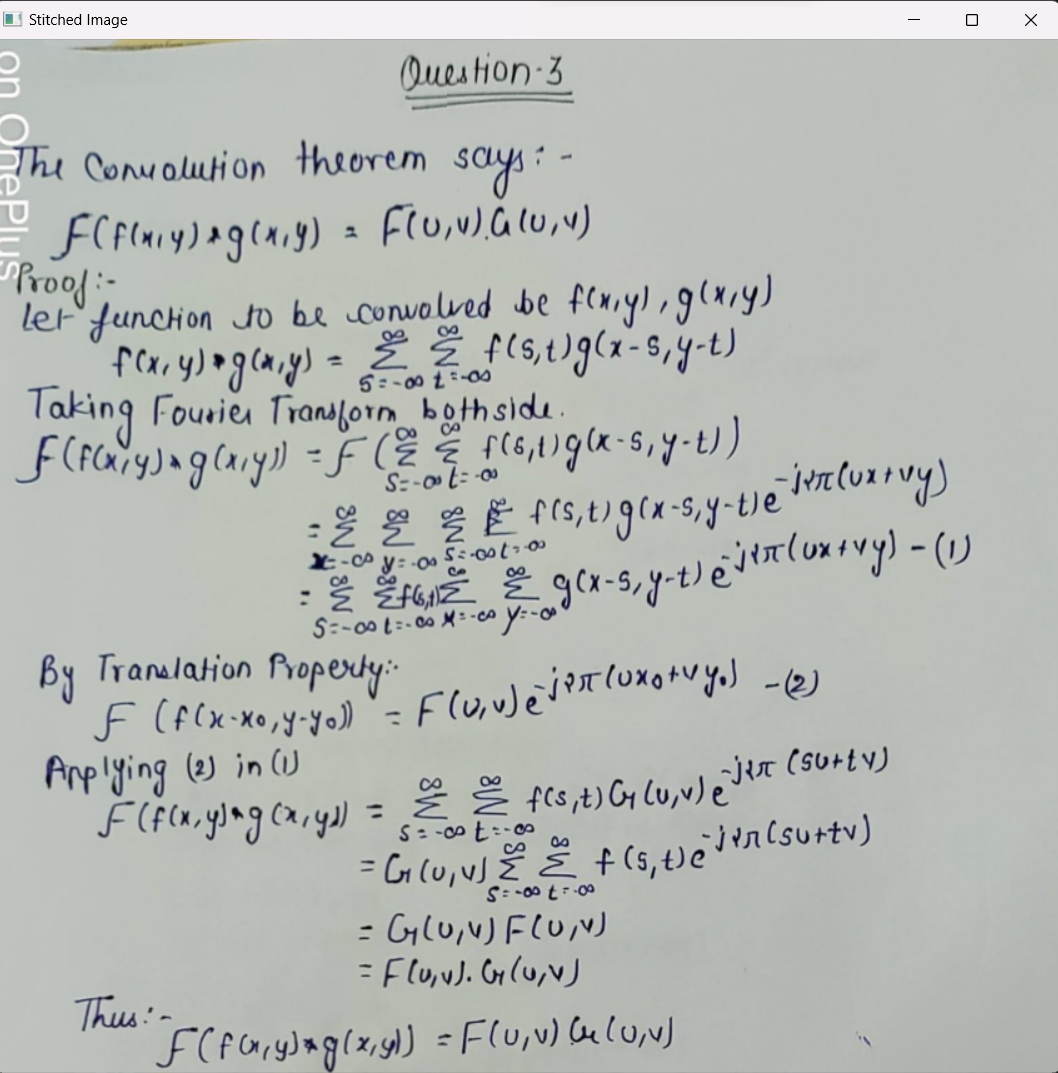 Stitched Image
on OnePlus
Question-3
The Convolution theorem says:-
F(f(x,y)*g(x,y) = F(u,v).G(u,v)
Proof:-
Let function to be convolved be f(x,y), g(x,y)
f(x,y)*g(x,y) = ∞∑s=-∞ ∞∑t=-∞ f(s,t)g(x-s,y-t)
Taking Fourier Transform both side.
F(f(x,y)*g(x,y)) = F(∞∑s=-∞ ∞∑t=-∞ f(s,t)g(x-s,y-t))
= ∞∑x=-∞ ∞∑y=-∞ ∞∑s=-∞ ∞∑t=-∞ f(s,t)g(x-s,y-t)e^-j2π(ux+vy)
= ∞∑s=-∞ ∞∑t=-∞ f(s,t) ∞∑x=-∞ ∞∑y=-∞ g(x-s,y-t)e^-j2π(ux+vy) -(1)
By Translation Property:-
F(f(x-x₀,y-y₀)) = F(u,v)e^-j2π(ux₀+vy₀) -(2)
Applying (2) in (1)
F(f(x,y)*g(x,y)) = ∞∑s=-∞ ∞∑t=-∞ f(s,t)G(u,v)e^-j2π(su+tv)
= G(u,v) ∞∑s=-∞ ∞∑t=-∞ f(s,t)e^-j2π(su+tv)
= G(u,v)F(u,v)
= F(u,v).G(u,v)
Thus:-
F(f(x,y)*g(x,y)) = F(u,v)G(u,v)